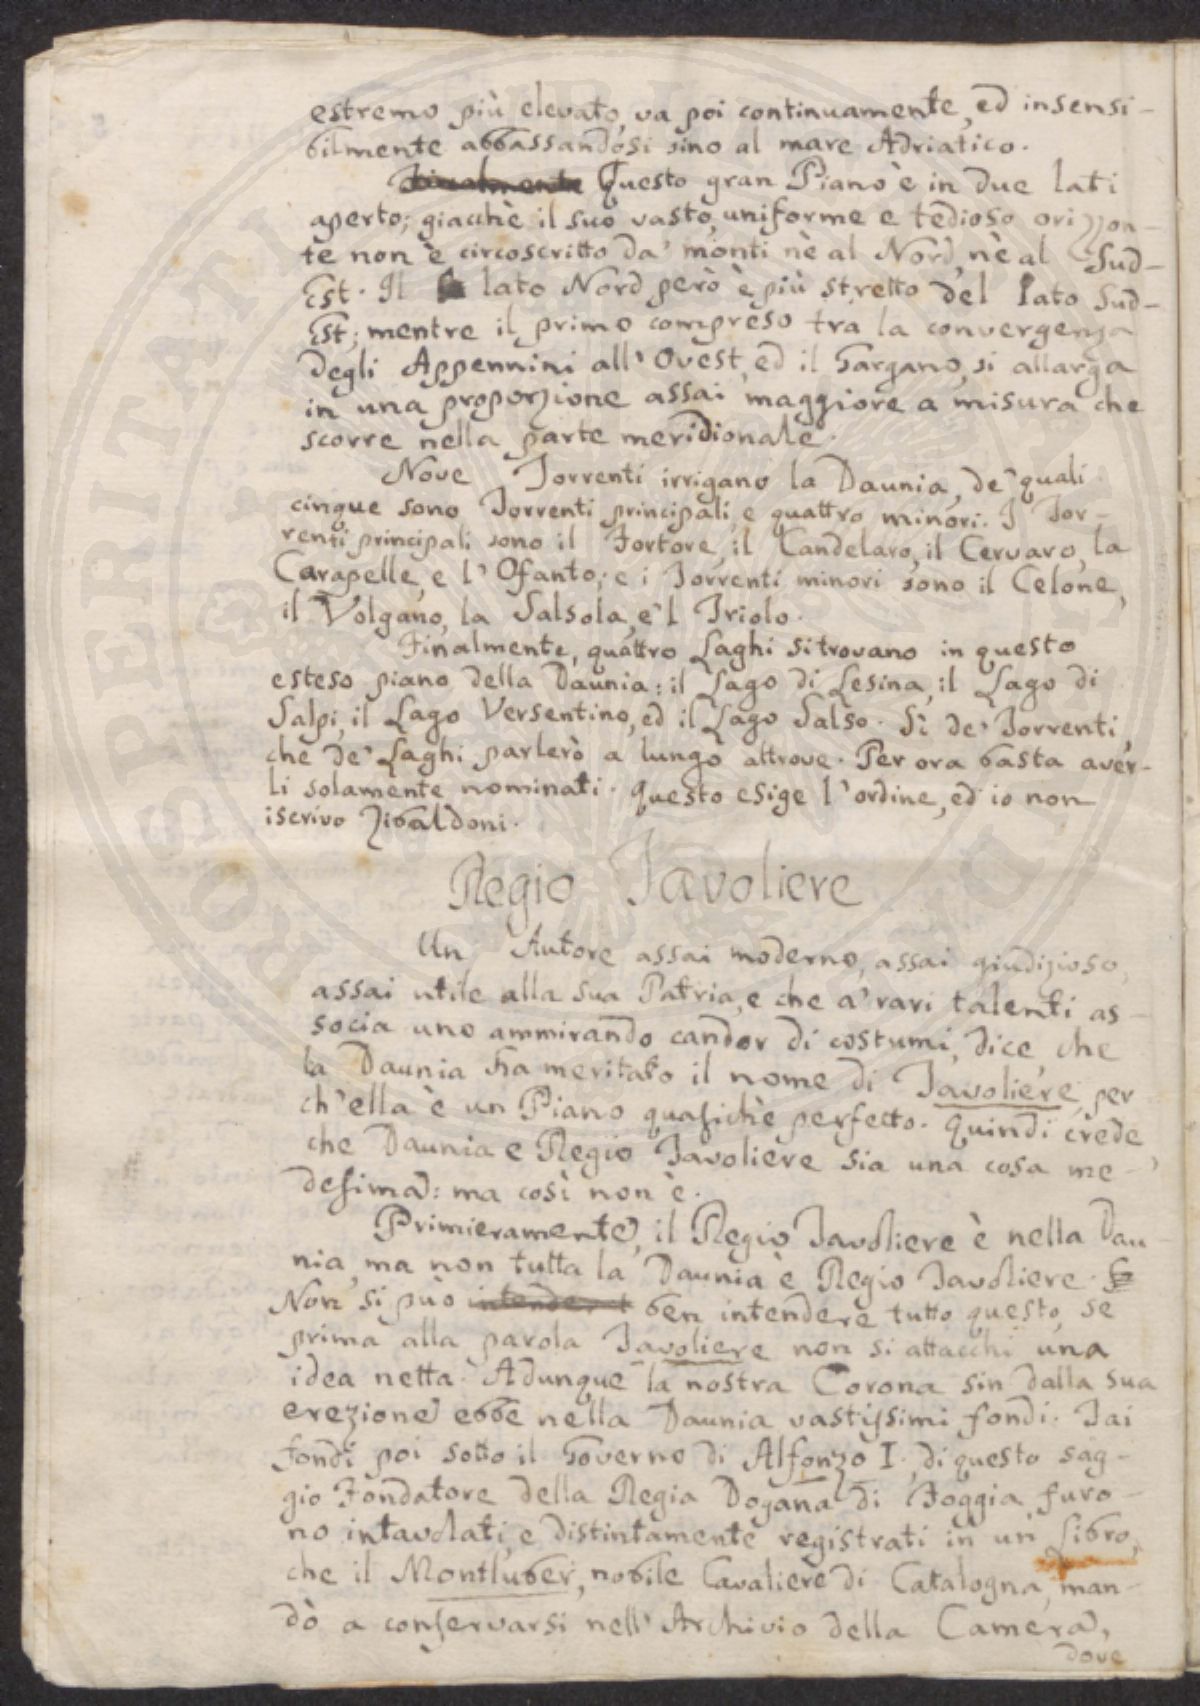 estremo più elevato, va poi continuamente, ed insensi-
bilmente abbassandosi sino al mare Adriatico.
Finalmente Questo gran Piano è in due lati
aperto; giacchè il suo vasto, uniforme e tedioso orizzon-
te non è circoscritto da' monti nè al Nord, nè al Sud-
Est. Il lato Nord però è più stretto del lato Sud-
Est; mentre il primo compreso tra la convergenza
degli Appennini all'Ovest, ed il Gargano, si allarga
in una proporzione assai maggiore a misura che
scorre nella parte meridionale.
Nove Torrenti irrigano la Daunia, de' quali
cinque sono Torrenti principali, e quattro minori. I Tor-
renti principali sono il Fortore, il Candelaro, il Cervaro, la
Carapelle, e l'Ofanto; e i Torrenti minori sono il Celone,
il Volgano, la Salsola, e'l Triolo.
Finalmente, quattro Laghi si trovano in questo
esteso piano della Daunia: il Lago di Lesina, il Lago di
Salpi, il Lago Versentino, ed il Lago Salso. Sì de' Torrenti,
che de' Laghi parlerò a lungo altrove. Per ora basta aver-
li solamente nominati. Questo esige l'ordine, ed io non
iscrivo Zibaldoni.
Regio Tavoliere
Un Autore assai moderno, assai giudizioso,
assai utile alla sua Patria, e che a' rari talenti as-
socia uno ammirando candor di costumi, dice, che
la Daunia ha meritato il nome di Tavoliere, per
ch'ella è un Piano quasichè perfetto. Quindi crede
che Daunia e Regio Tavoliere sia una cosa me-
desima: ma così non è.
Primieramente, il Regio Tavoliere è nella Dau-
nia, ma non tutta la Daunia è Regio Tavoliere.
Non si può intendere ben intendere tutto questo, se
prima alla parola Tavoliere non si attacchi una
idea netta. Adunque la nostra Corona sin dalla sua
erezione ebbe nella Daunia vastissimi fondi. Tai
fondi poi sotto il Governo di Alfonzo I., di questo sag-
gio Fondatore della Regia Dogana di Foggia, furo-
no intavolati, e distintamente registrati in un Libro,
che il Montluber, nobile Cavaliere di Catalogna, man-
dò a conservarsi nell'Archivio della Camera,
dove
PROSPERITATI